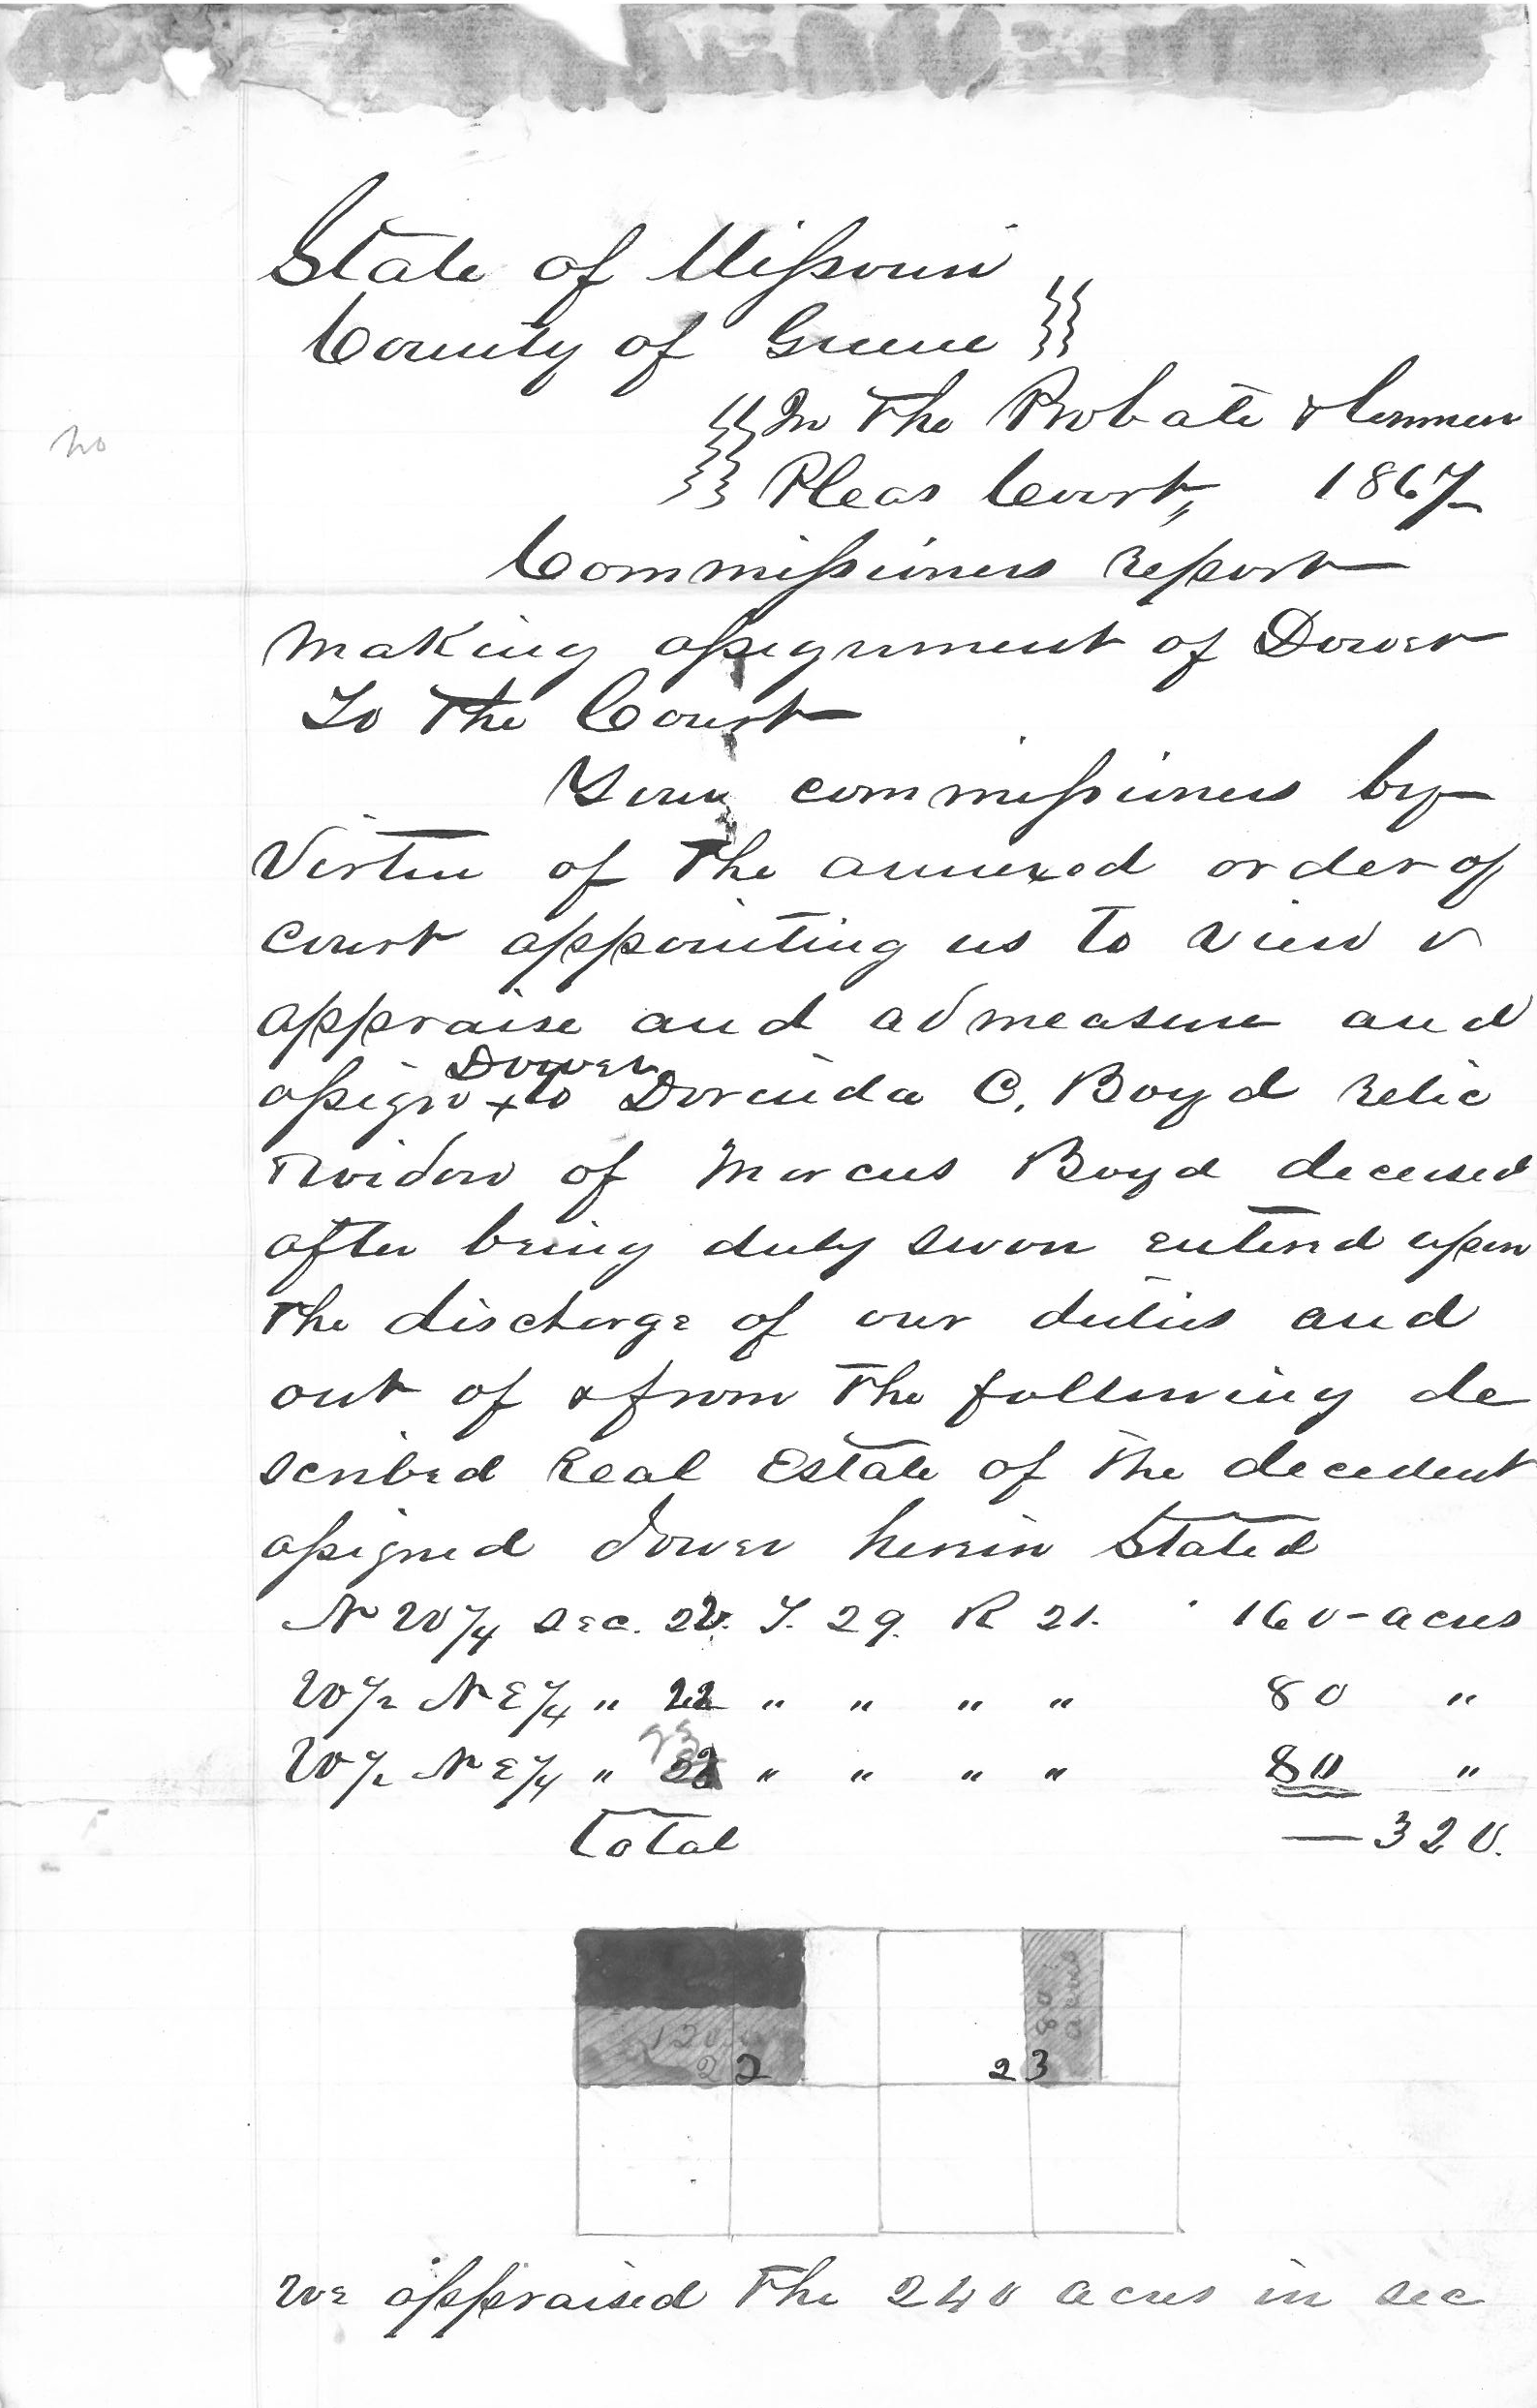 State of Missouri
County of Greene
In the Probate & Common
no
Pleas Court, 1867
Commissioners report
making assignment of Dower
To the Court
Your commissioners by
Virtue of the annexed order of
court appointing us to view &
appraise and admeasure and
Dower
assign x to Dorinda C. Boyd relic
widow of Marcus Boyd deceased
after being duly sworn entered upon
the discharge of our duties and
out of & from the following de
scribed Real Estate of the decedent
assigned dower herein Stated
N W 1/4 Sec. 22. T. 29. R 21. 160 - acres
W 1/2 N E 1/4 " 22 " " " " 80 "
23
W 1/2 N E 1/4 " " " " " 80 "
Total — 320.
80 acres
120
22
23
We appraised the 240 acres in sec